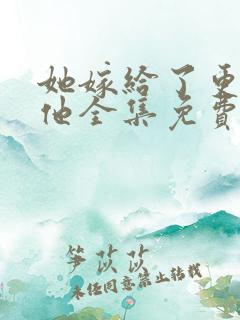 她嫁给了更
他全集免费
笋苡苡
未经同意禁止转载